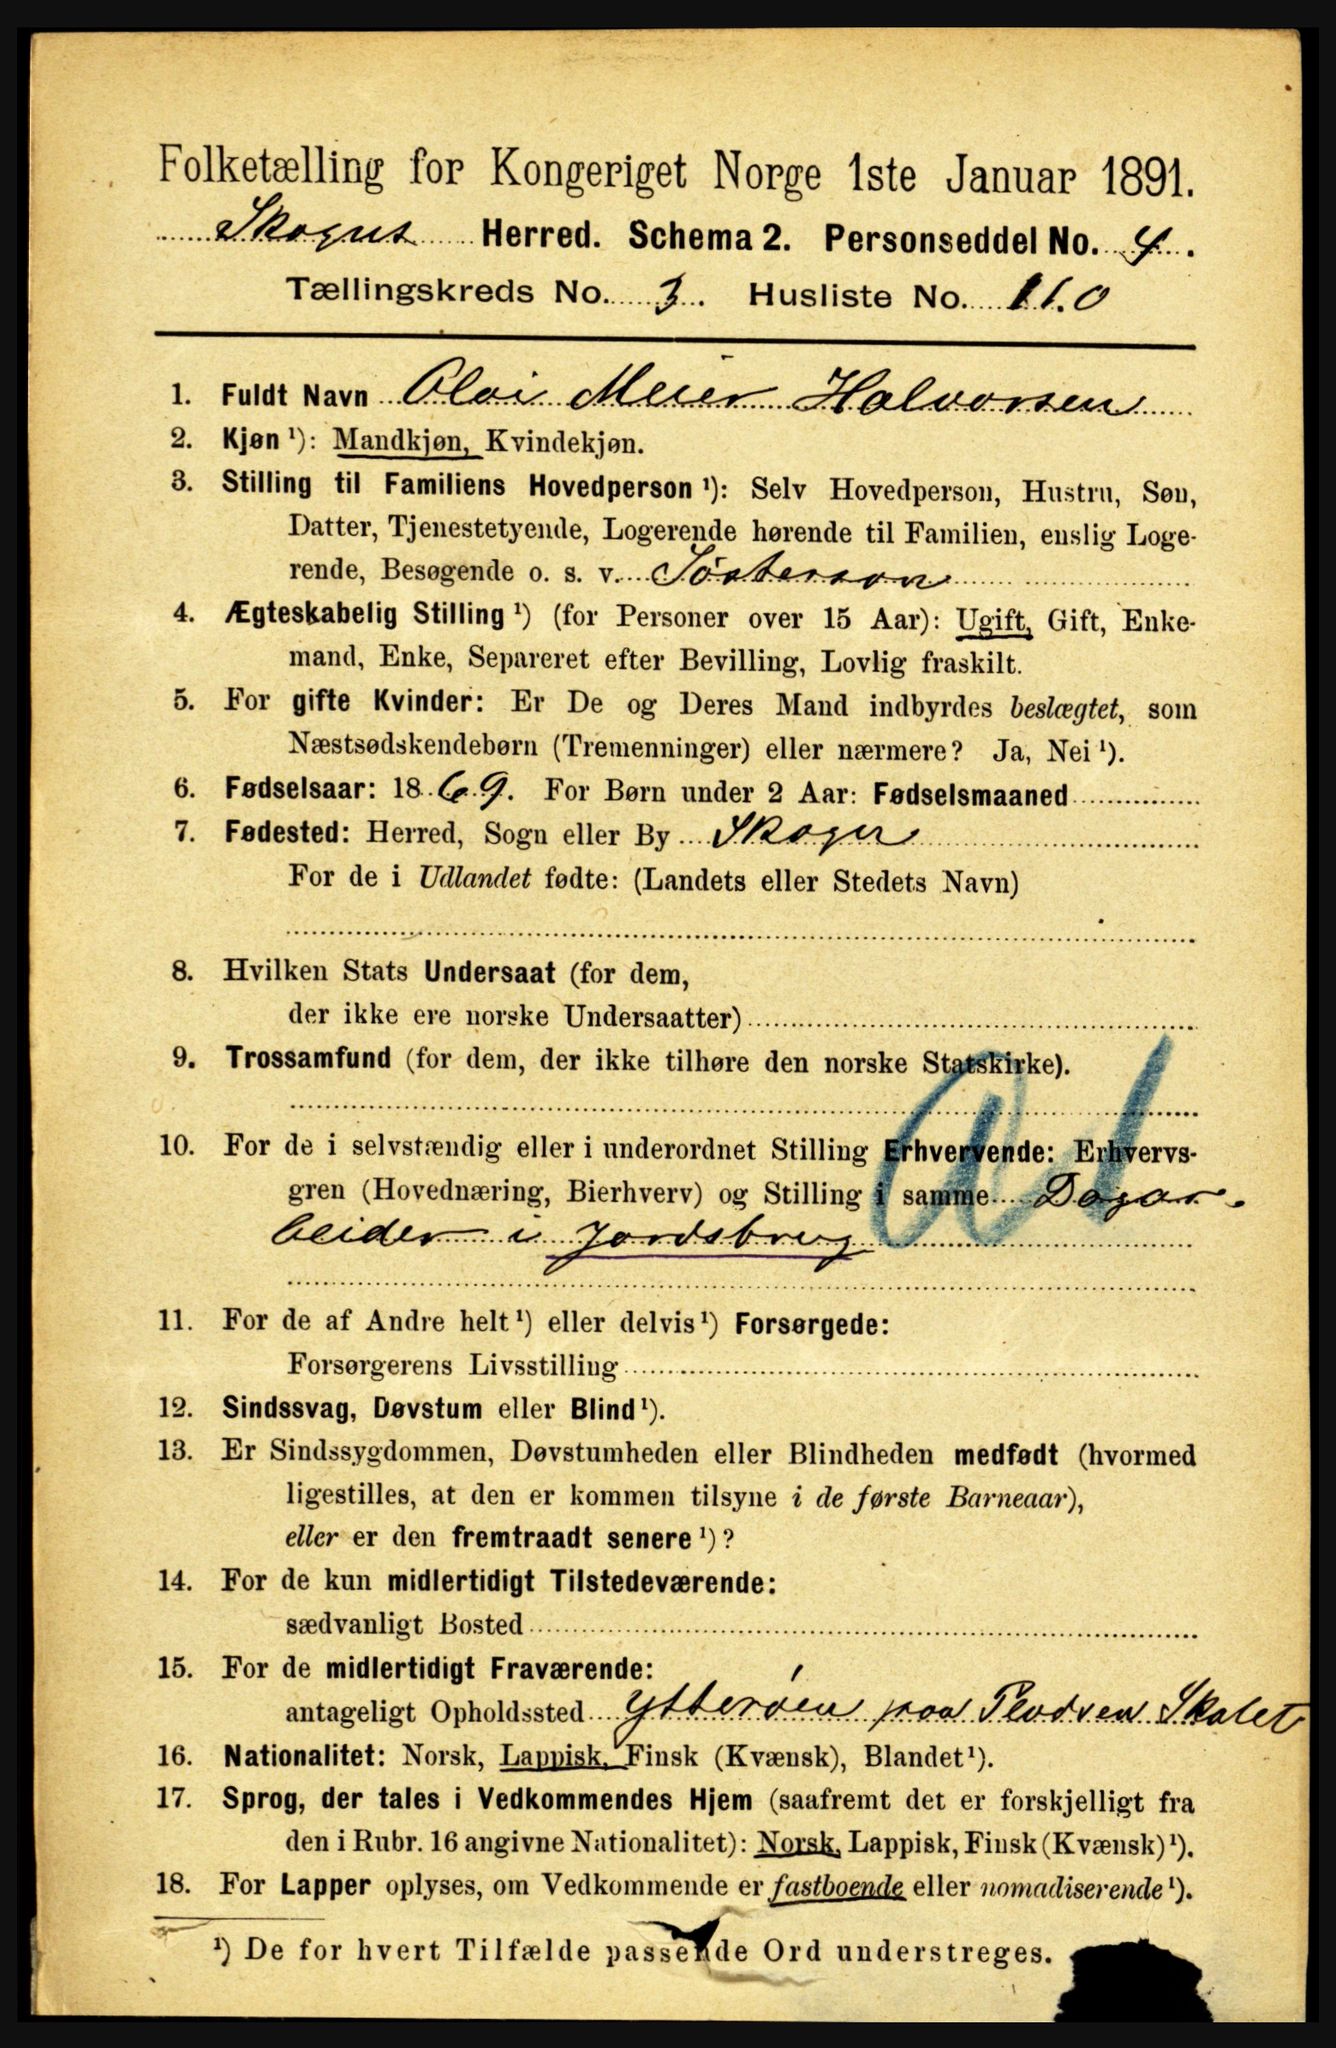 Folketælling for Kongeriget Norge 1ste Januar 1891.
Skogns Herred. Schema 2. Personseddel No. 4.
Tællingskreds No. 3. Husliste No. 110
1. Fuldt Navn Olai Meier Halvorsen
2. Kjøn ¹): Mandkjøn, Kvindekjøn.
3. Stilling til Familiens Hovedperson ¹): Selv Hovedperson, Hustru, Søn,
Datter, Tjenestetyende, Logerende hørende til Familien, enslig Loge-
rende, Besøgende o. s. v. Søsterson
4. Ægteskabelig Stilling ¹) (for Personer over 15 Aar): Ugift, Gift, Enke-
mand, Enke, Separeret efter Bevilling, Lovlig fraskilt.
5. For gifte Kvinder: Er De og Deres Mand indbyrdes beslægtet, som
Næstsødskendebørn (Tremenninger) eller nærmere? Ja, Nei ¹).
6. Fødselsaar: 1869. For Børn under 2 Aar: Fødselsmaaned
7. Fødested: Herred, Sogn eller By Skogn
For de i Udlandet fødte: (Landets eller Stedets Navn)
8. Hvilken Stats Undersaat (for dem,
der ikke ere norske Undersaatter)
9. Trossamfund (for dem, der ikke tilhøre den norske Statskirke).
10. For de i selvstændig eller i underordnet Stilling Erhvervende: Erhvervs-
gren (Hovednæring, Bierhverv) og Stilling i samme Dagar-
beider i Jordsbrug
11. For de af Andre helt ¹) eller delvis ¹) Forsørgede:
Forsørgerens Livsstilling
12. Sindssvag, Døvstum eller Blind ¹).
13. Er Sindssygdommen, Døvstumheden eller Blindheden medfødt (hvormed
ligestilles, at den er kommen tilsyne i de første Barneaar),
eller er den fremtraadt senere ¹)?
14. For de kun midlertidigt Tilstedeværende:
sædvanligt Bosted
15. For de midlertidigt Fraværende:
antageligt Opholdssted Ytterøen paa Skalet
16. Nationalitet: Norsk, Lappisk, Finsk (Kvænsk), Blandet ¹).
17. Sprog, der tales i Vedkommendes Hjem (saafremt det er forskjelligt fra
den i Rubr. 16 angivne Nationalitet): Norsk, Lappisk, Finsk (Kvænsk) ¹).
18. For Lapper oplyses, om Vedkommende er fastboende eller nomadiserende ¹).
¹) De for hvert Tilfælde passende Ord understreges.